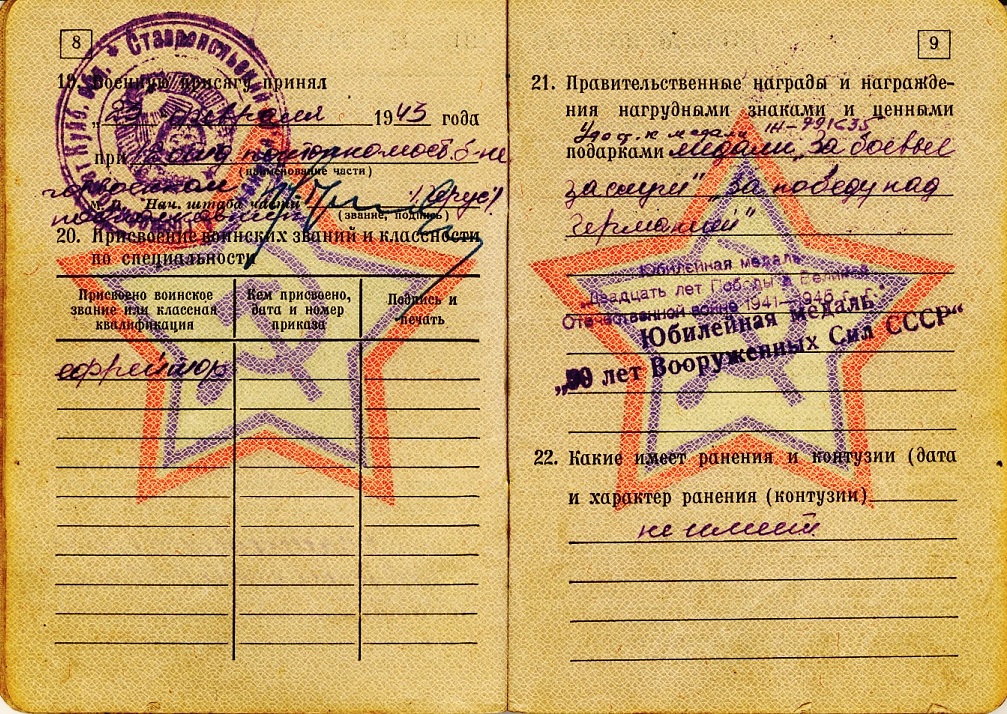 8
Ставропольский
19. Военную присягу принял
„23" февраля 1943 года
при
(наименование части)
М. П. Нач. штаба части
(звание, подпись)
20. Присвоение воинских званий и классности
по специальности
Присвоено воинское
звание или классная
квалификация
Кем присвоено,
дата и номер
приказа
Подпись и
печать
ефрейтор
9
21. Правительственные награды и награжде-
ния нагрудными знаками и ценными
Удост. к медали
подарками медали „За боевые
заслуги" „За победу над
Германией"
Юбилейная медаль
„Двадцать лет Победы в Великой
Отечественной войне 1941—1945 г. г."
Юбилейная медаль
„50 лет Вооруженных Сил СССР"
22. Какие имеет ранения и контузии (дата
и характер ранения (контузии)
не имеет